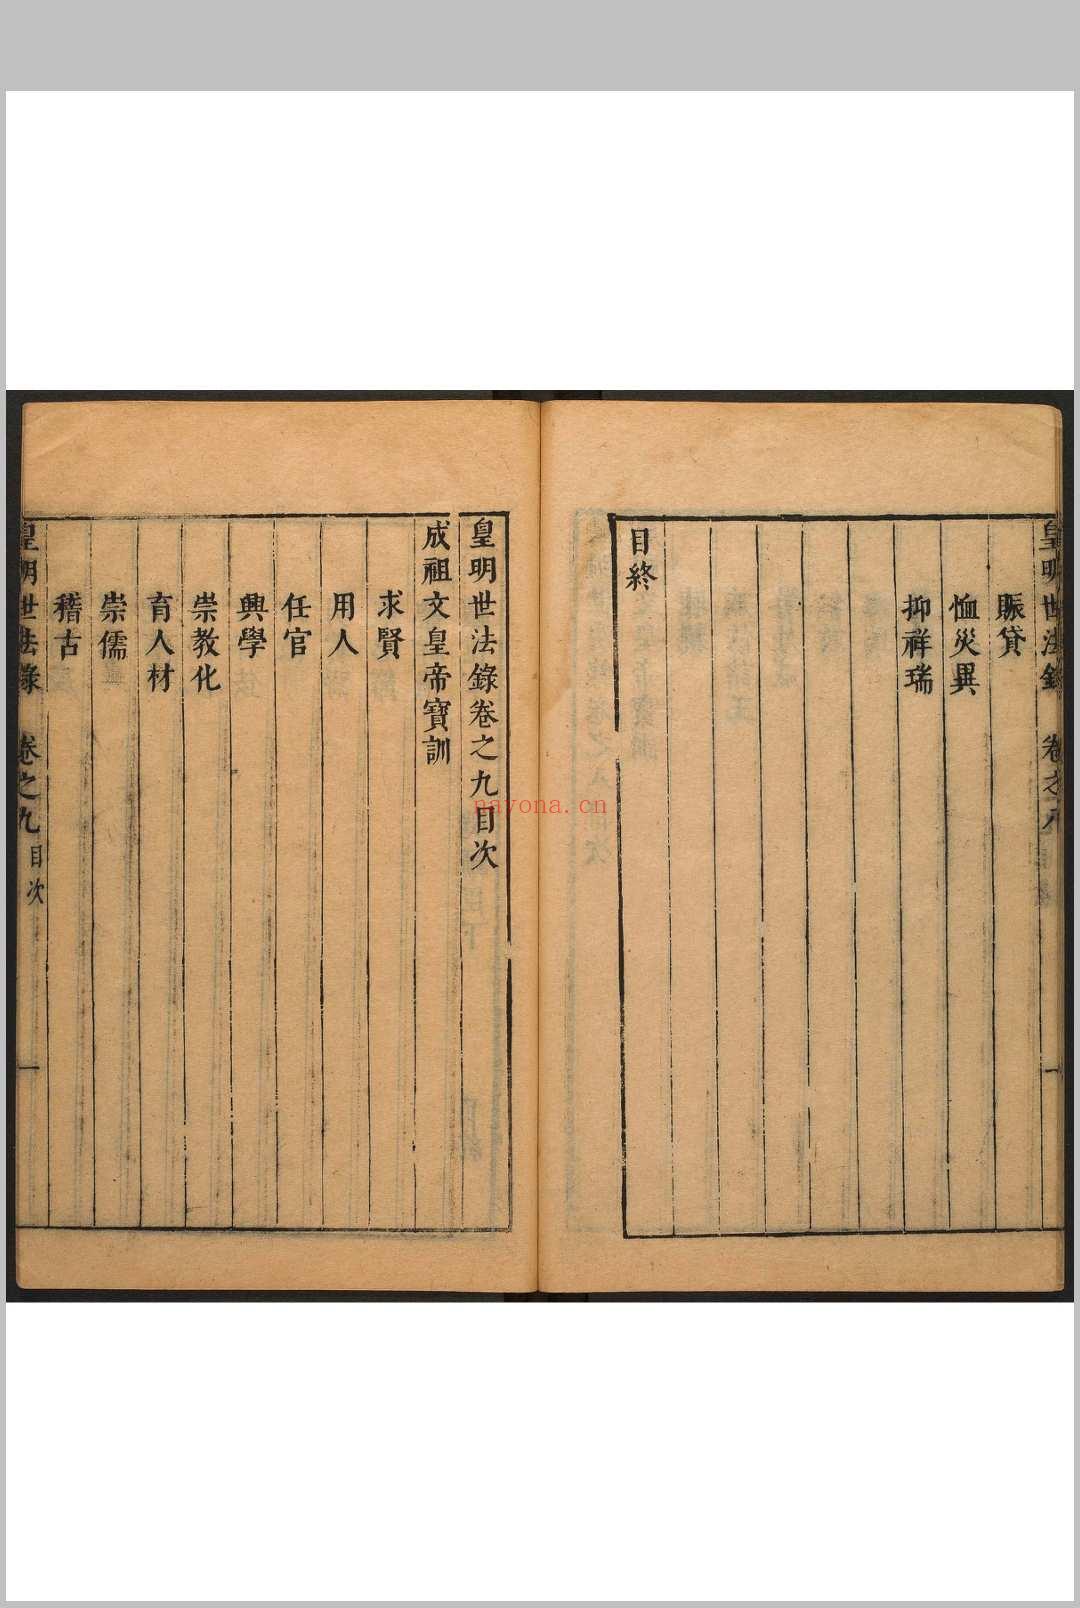 皇明世法錄 卷之八
賑貸
恤災異
抑祥瑞
目終
皇明世法錄卷之九目次
成祖文皇帝寶訓
求賢
用人
任官
興學
崇教化
育人材
崇儒
稽古
皇明世法錄 卷之九 目次 一
nayona.cn